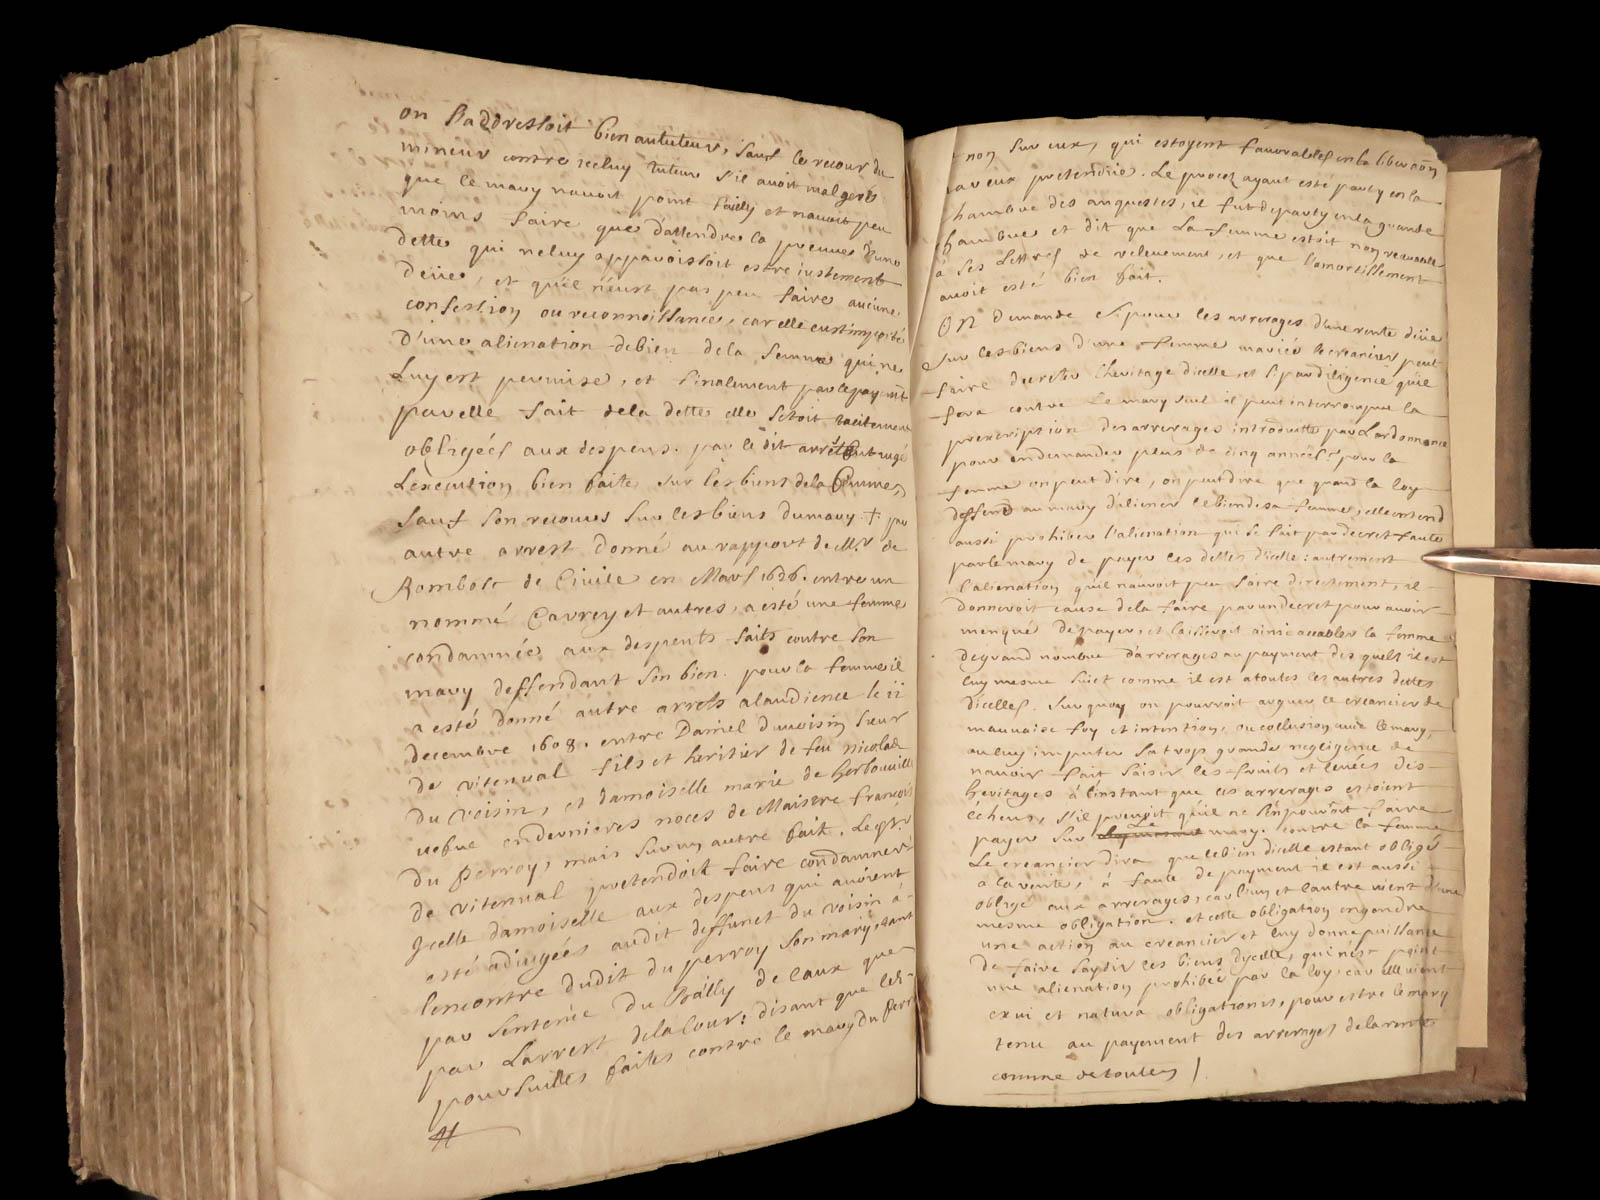 on Saddressoit bien au tuteur, sauf le recour du
mineur contre iceluy tuteur s'il avoit mal geré
que le mary navoit point failly et navoit peu
moins faire que d'attendre la preuve d'une
dette qui ne luy apparoissoit estre iustement
deüe, et qu'il n'eust pas peu faire aucune
confession ou reconnoissance, car elle eust importé
d'une alienation de bien de la femme qui ne
luy est permise, et finalement par le payemt
par elle fait de la dette elle s'estoit tacitement
obligée aux despens. par le dit arrest fut iugé
L'execution bien faite sur les biens de la femme,
sauf son recours sur les biens du mary + par
autre arrest donné au rapport de Mr. de
Rombosc de Civile en Mars 1626. entre un
nommé Cavrey et autres, a esté une femme
condamnée aux despents faits contre son
mary deffendant son bien. pour la femme il
a esté donné autre arrests a laudience le ii
decembre 1608. entre Daniel du voisin sieur
de vitenval fils et heritier de feu nicolas
du voisin, et damoiselle marie de herbouville
uefue en dernieres noces de Maistre francois
du Perroy, mais sur un autre fait. Le sr.
de vitenval pretendoit faire condamner
Icelle damoiselle aux despens qui avoient
esté adiugées audit deffunct du voisin a
lencontre dudit du perroy son mary, tant
par sentence du Bailly de Caux que
par Larrest de la Cour: disant que les
poursuittes faites contre le mary du Perr
non sur eux, qui estoyent favorables en la liberaõn
par eux pretendüe. Le procez ayant esté party en la
chambre des enquestes, il fut departy en la grande
chambre et dit que La femme estoit non recevable
à ses Lettres de relevement, et que l'amortissement
avoit esté bien fait.
ON demande si pour les arrerages d'une rente deüe
sur les biens d'une femme mariée le creancier peut
faire decreter l'heritage d'icelle, et si par diligence quil
fera contre le mary seul il peut interrompre la
prescription des arrerages introduitte par Lordonnance
pour en demander plus de cinq années? pour la
femme on peut dire, on peut dire que quand la loy
deffend au mary d'aliener le bien de sa femme, elle entend
aussi prohiber l'alienation qui se fait par decret faute
par le mary de payer les dettes d'icelle: autrement
l'alienation quil n'auroit peu faire directement, il
donneroit cause de la faire par un decret pour avoir
menqué de payer, et laisseroit ainsi accabler la femme
de grand nombre d'arrerages au payment des quels il est
luy mesme suiet comme il est a toutes les autres dettes
d'icelles. Sur quoy on pourroit arguer le creancier de
mauvaise foy et intention, ou collusion avec le mary,
ou luy imputer sa trop grande negligence de
navoir fait saisir les fruits et levées des
heritages à l'instant que les arrerages estoient
écheus, s'il prevoit quil ne s'en pourroit faire
payer sur Le mary. contre la femme
Le creancier dira que le bien d'icelle estant obligé
a la rente, à faute de payment il est aussi
obligé aux arrerages, car l'un et lautre vient d'une
mesme obligation. et cette obligation engendre
une action au creancier et luy donne puissance
de faire saysir les biens d'ycelle, qui n'est point
une alienation prohibée par la loy, car elle vient
ex vi et natura obligationis, pour estre le mary
tenu au payement des arrerages de la rente
comme de toutes